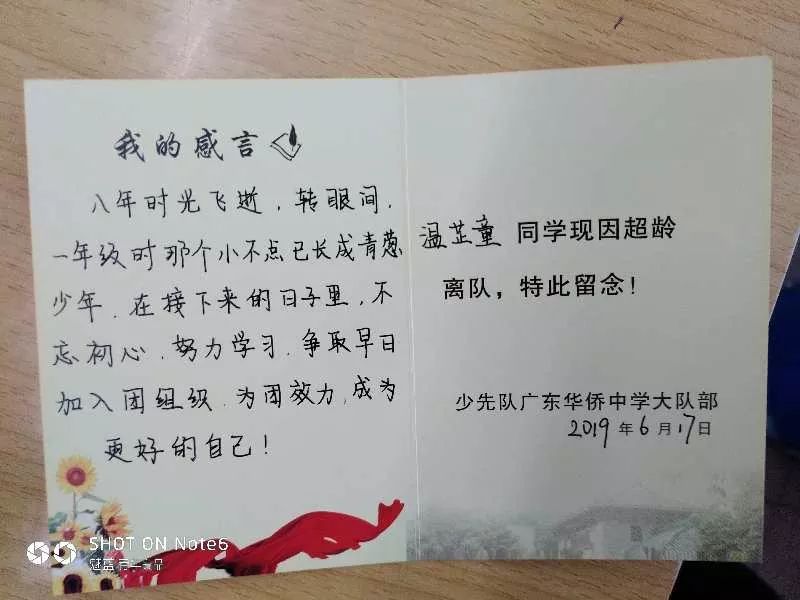 我的感言
八年时光飞逝，转眼间，
一年级时那个小不点已长成青葱
少年．在接下来的日子里，不
忘初心，努力学习．争取早日
加入团组织．为团效力，成为
更好的自己！
温芷童 同学现因超龄
离队，特此留念！
少先队广东华侨中学大队部
2019年6月17日
SHOT ON Note6
魅蓝